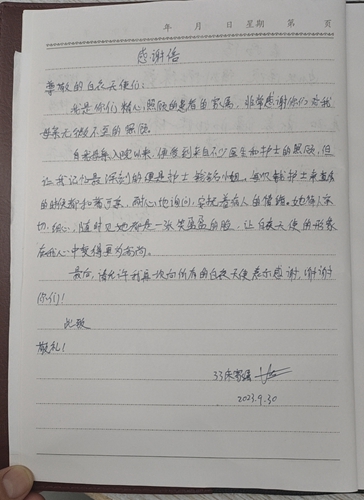 年 月 日 星期 第 页
感谢信
尊敬的白衣天使们:
我是你们精心照顾的患者的家属,非常感谢你们对我
母亲无微不至的照顾。
自我母亲入院以来,便受到来自不少医生和护士的照顾,但
让我记忆最深刻的便是护士 小姐,每次 护士来查房
的时候都和蔼可亲,耐心地询问,安抚着病人的情绪。她待人亲
切,细心,随时见她都是一张笑盈盈的脸,让白衣天使的形象
在我心中变得更为高尚。
最后,请允许我再一次向所有的白衣天使表示感谢,谢谢
你们!
此致
敬礼!
33床家属
2023.9.30